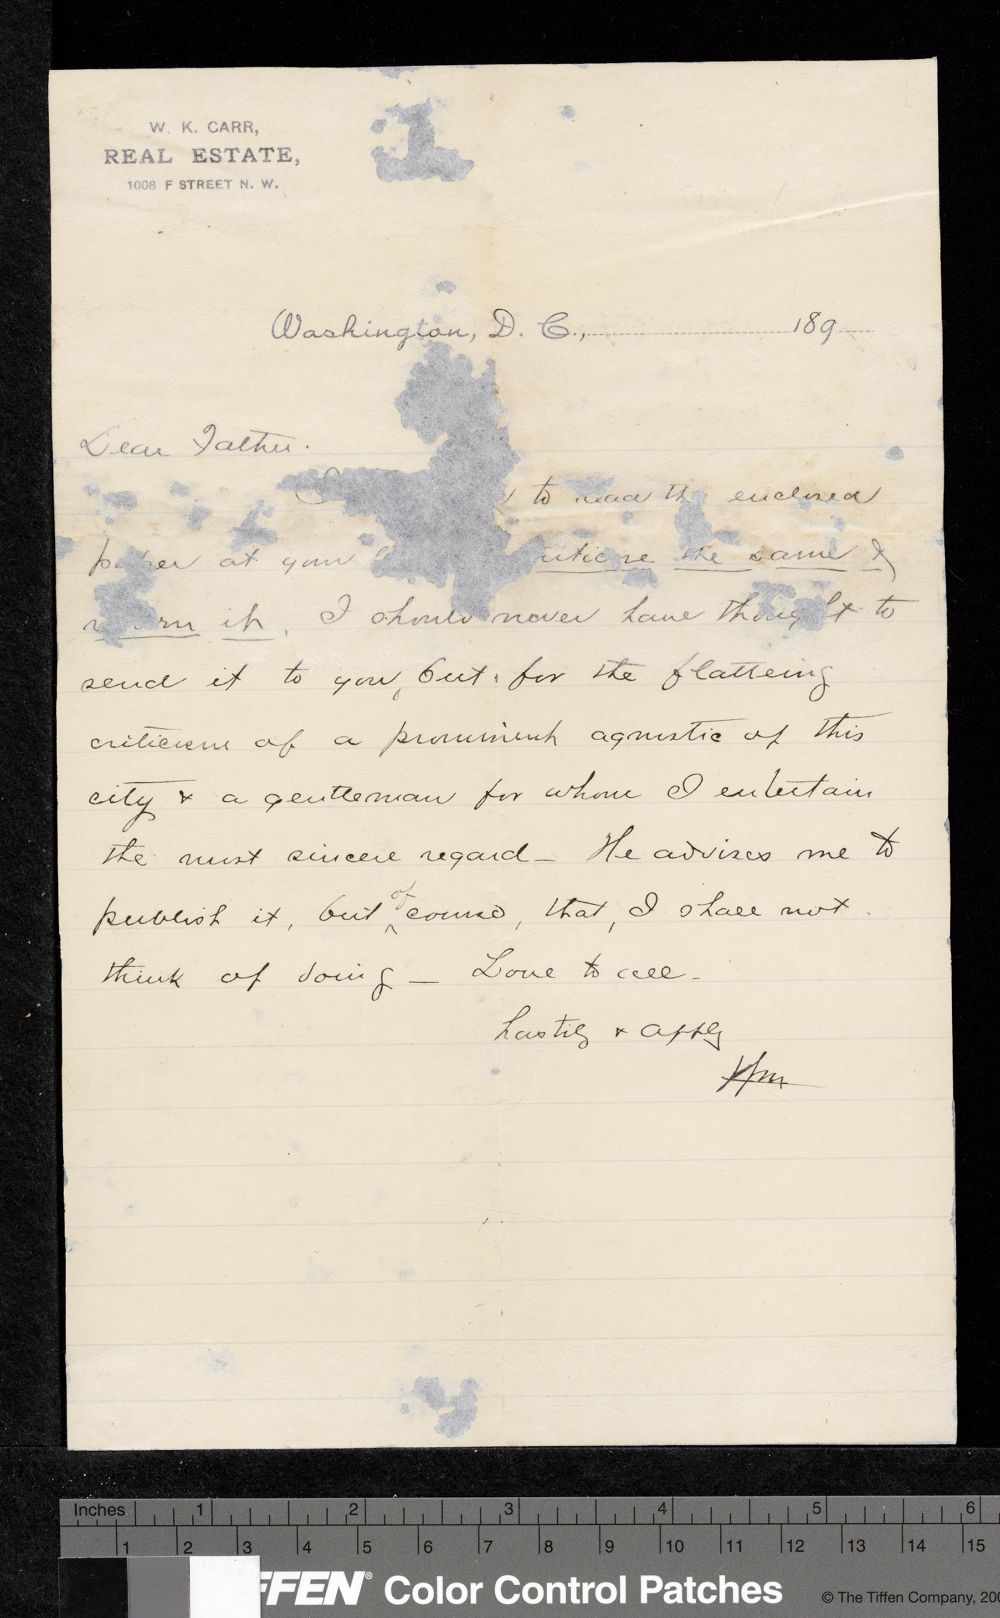 W. K. CARR,
REAL ESTATE,
1008 F STREET N. W.
Washington, D. C., 189
Dear Father.
to read the enclosed
paper at your the same &
it. I should never have thought to
send it to you, but for the flattering
criticism of a prominent agnostic of this
city & a gentleman for whom I entertain
the most sincere regard — He advises me to
publish it, but of course, that, I shall not
think of doing — Love to all —
hastily & affly
Wm
Inches 1 2 3 4 5 6
1 2 3 4 5 6 7 8 9 10 11 12 13 14 15
FFEN® Color Control Patches
© The Tiffen Company, 200